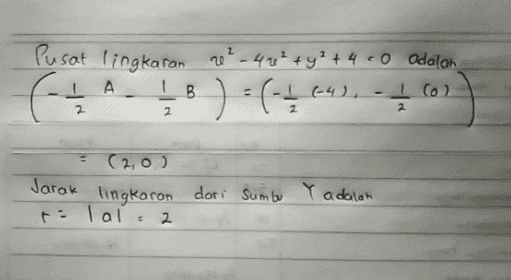 Pusat lingkaran x² - 4x² + y² + 4 = 0 adalah
(-1/2 A - 1/2 B) = (-1/2 (-4), -1/2 (0))
= (2,0)
Jarak lingkaran dari Sumbu Y adalah
r = |a| = 2